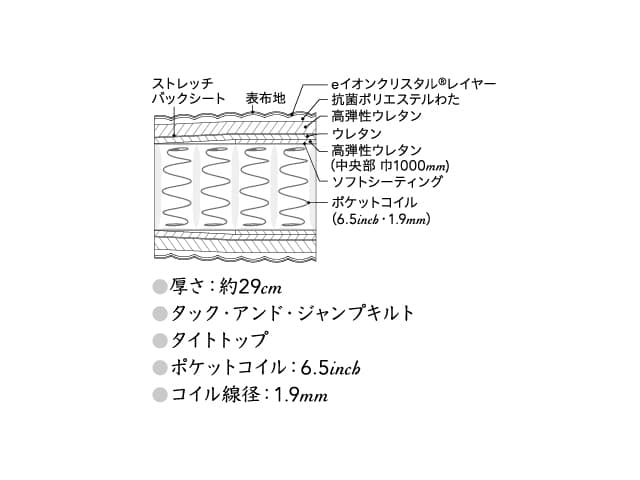 ストレッチ
バックシート
表布地
eイオンクリスタル®レイヤー
抗菌ポリエステルわた
高弾性ウレタン
ウレタン
高弾性ウレタン
(中央部 巾1000mm)
ソフトシーティング
ポケットコイル
(6.5inch・1.9mm)
厚さ：約29cm
タック・アンド・ジャンプキルト
タイトトップ
ポケットコイル：6.5inch
コイル線径：1.9mm